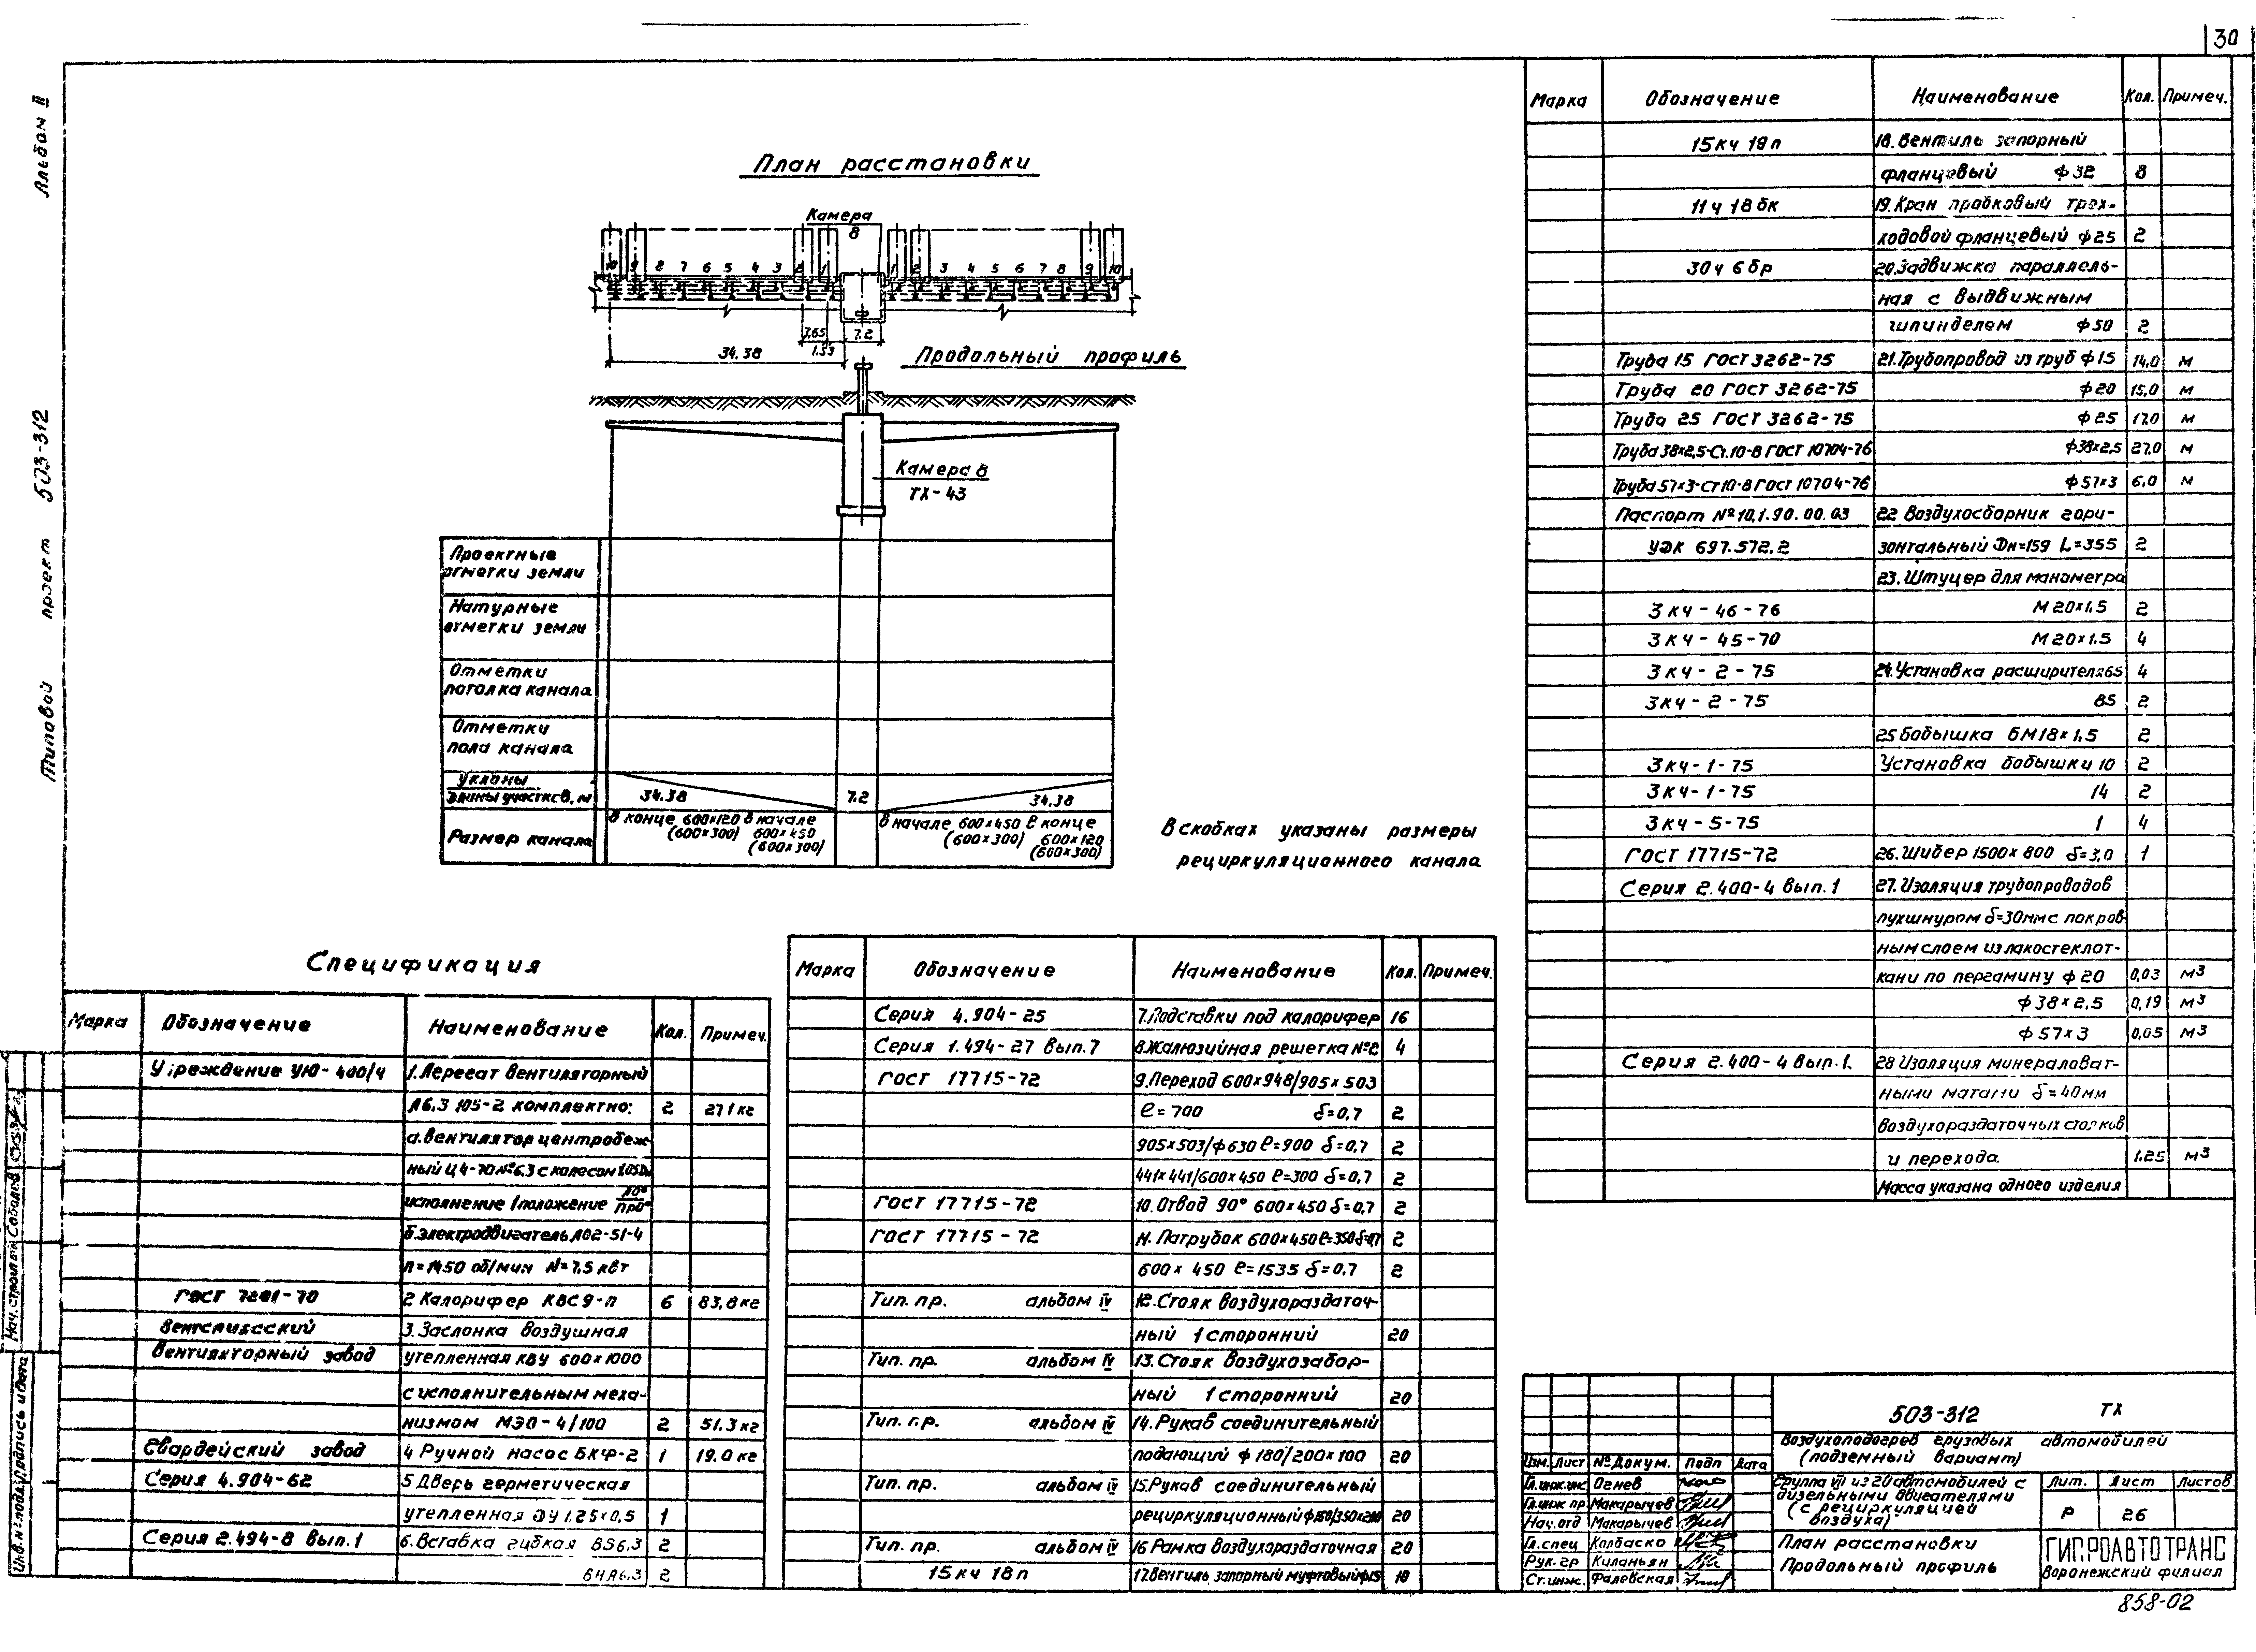 30
Альбом II
Типовой проект 503-312
План расстановки
Камера
8
10 9 8 7 6 5 4 3 2 1
1 2 3 4 5 6 7 8 9 10
7.2
1.53
34.38
Продольный профиль
Камера 8
ТХ-43
Проектные
отметки земли
Натурные
отметки земли
Отметки
потолка канала
Отметки
пола канала
Уклоны
Длины участков, м
34.38 7.2 34.38
Размер канала
в конце 600×120 в начале
(600×300) 600×450
(600×300)
в начале 600×450 в конце
(600×300) 600×120
(600×300)
В скобках указаны размеры
рециркуляционного канала
Спецификация
Марка Обозначение Наименование Кол. Примеч.
Учреждение УЮ-400/4 1. Агрегат вентиляторный
А6.3 105-2 комплектно: 2 271кг
а. вентилятор центробеж-
ный Ц4-70 №6.3 с колесом 1.05Dн
исполнение 1 положение Л0°/Пр0°
б. электродвигатель АО2-51-4
n=1450 об/мин N=7.5 квт
ГОСТ 7201-70 2 Калорифер КВС9-п 6 83,8кг
3. Заслонка воздушная
Вентиляторный завод утепленная КВУ 600×1000
с исполнительным меха-
низмом МЭО-4/100 2 51.3кг
завод 4 Ручной насос БКФ-2 1 19.0кг
Серия 4.904-62 5 Дверь герметическая
утепленная ДУ 1.25×0,5 1
Серия 2.494-8 вып.1 6. Вставка гибкая В86.3 2
БНА6.3 2
Марка Обозначение Наименование Кол. Примеч.
Серия 4.904-25 7. Подставки под калорифер 16
Серия 1.494-27 вып.7 8. Жалюзийная решетка №2 4
ГОСТ 17715-72 9. Переход 600×948/905×503
ℓ=700 δ=0,7 2
905×503/ф630 ℓ=900 δ=0,7 2
441×441/600×450 ℓ=300 δ=0,7 2
ГОСТ 17715-72 10. Отвод 90° 600×450 δ=0,7 2
ГОСТ 17715-72 11. Патрубок 600×450 ℓ=350 δ=0,7 2
600×450 ℓ=1535 δ=0.7 2
Тип. пр. альбом IV 12. Стояк воздухораздаточ-
ный 1 сторонний 20
Тип. пр. альбом IV 13. Стояк воздухозабор-
ный 1 сторонний 20
Тип. пр. альбом IV 14. Рукав соединительный
подающий ф180/200×100 20
Тип. пр. альбом IV 15. Рукав соединительный
рециркуляционный 20
Тип. пр. альбом IV 16 Рамка воздухораздаточная 20
15кч 18п 17. Вентиль запорный муфтовый ф15 18
Марка Обозначение Наименование Кол. Примеч.
15кч 19п 18. Вентиль запорный
фланцевый ф32 8
11ч 18бк 19. Кран пробковый трех-
ходовой фланцевый ф25 2
30ч 6бр 20. Задвижка параллель-
ная с выдвижным
шпинделем ф50 2
Труба 15 ГОСТ 3262-75 21. Трубопровод из труб ф15 14,0 м
Труба 20 ГОСТ 3262-75 ф20 15,0 м
Труба 25 ГОСТ 3262-75 ф25 17,0 м
Труба 38×2,5-Ст.10-В ГОСТ 10704-76 ф38×2,5 27,0 м
Труба 57×3-Ст10-В ГОСТ 10704-76 ф57×3 6,0 м
Паспорт №10.1.90.00.03 22 Воздухосборник гори-
УДК 697.572.2 зонтальный Дн=159 L=355 2
23. Штуцер для манометра
3кч-46-76 М20×1.5 2
3кч-45-70 М20×1.5 4
3кч-2-75 24. Установка расширителя 65 4
3кч-2-75 85 2
25 Бобышка БМ18×1,5 2
3кч-1-75 Установка бобышки 10 2
3кч-1-75 14 2
3кч-5-75 1 4
ГОСТ 17715-72 26. Шибер 1500×800 δ=3,0 1
Серия 2.400-4 вып.1 27. Изоляция трубопроводов
пухшнуром δ=30мм с покров-
ным слоем из лакостеклот-
кани по пергамину ф20 0,03 м³
ф38×2,5 0,19 м³
ф57×3 0,05 м³
Серия 2.400-4 вып.1. 28 Изоляция минераловат-
ными матами δ=40мм
воздухораздаточных стояков
и перехода 1.25 м³
Масса указана одного изделия
Изм. Лист № Докум. Подп Дата
Гл.инж.инс Огнев
Гл.инж пр. Макарычев
Нач.отд Макарычев
Гл.спец Колбаско
Рук.гр Киланьян
Ст.инж. Фалевская
503-312 ТХ
Воздухоподогрев грузовых автомобилей
(подземный вариант)
Группа VII из 20 автомобилей с
дизельными двигателями
(с рециркуляцией
воздуха)
Лит. Лист Листов
Р 26
План расстановки
Продольный профиль
ГИПРОАВТОТРАНС
Воронежский филиал
858-02
Инв. № подл. Подпись и дата